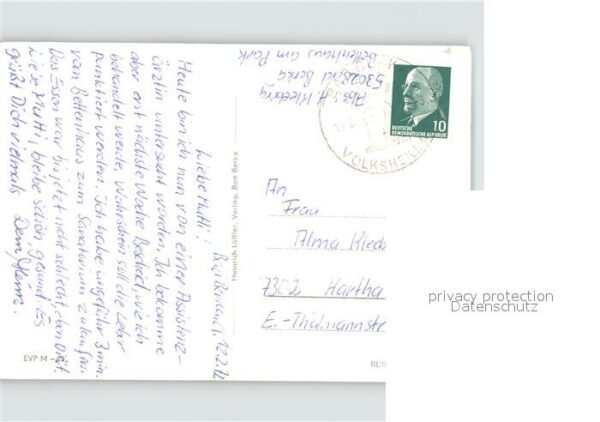 Bad Berka, d. 12.2.72
Liebe Mutti!
Heute bin ich nun von einer Assistenz-
ärztin untersucht worden. Ich bekomme
aber erst nächste Woche Bescheid, wie ich
behandelt werde. Wahrscheinl. soll die Leber
punktiert werden. Ich habe ungefähr 3 min.
vom Bettenhaus zum Sanatorium zu laufen.
Das Essen war bis jetzt nicht schlecht, eben Diät.
Liebe Mutti, bleibe schön gesund! Es
grüßt Dich vielmals Dein
Heinrich Löffler, Verlag, Bad Berka
EVP M
III/1
Abs.: H. Kleeberg
53028 Bad Berka
Bettenhaus am Park
VOLKSHEIL
10
DEUTSCHE
DEMOKRATISCHE REPUBLIK
An
Frau
Alma Kleeb
7302 Hartha
E.-Thälmannstr
privacy protection
Datenschutz